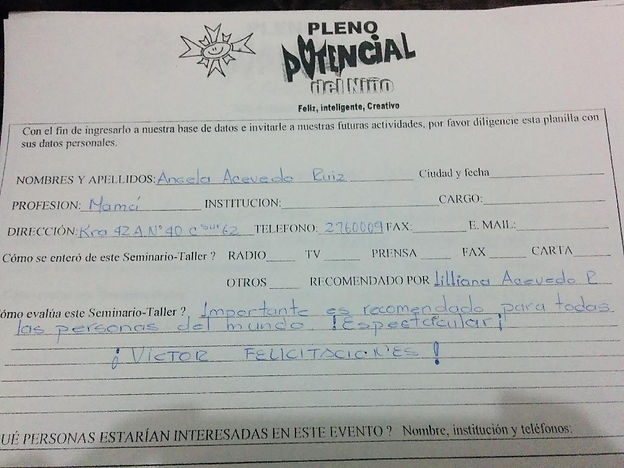 PLENO
POTENCIAL
del Niño
Feliz, inteligente, Creativo
Con el fin de ingresarlo a nuestra base de datos e invitarle a nuestras futuras actividades, por favor diligencie esta planilla con
sus datos personales.
NOMBRES Y APELLIDOS: Angela Acevedo Ruiz Ciudad y fecha
PROFESION: Mamá INSTITUCION: CARGO:
DIRECCIÓN: Kra 42 A N° 40 C sur 62 TELEFONO: 2760009 FAX: E. MAIL:
Cómo se enteró de este Seminario-Taller ? RADIO TV PRENSA FAX CARTA
OTROS RECOMENDADO POR Lilliana Acevedo R
ómo evalúa este Seminario-Taller ? Importante es recomendado para todas
las personas del mundo ¡Espectacular!
¡VICTOR FELICITACIONES!
UÉ PERSONAS ESTARÍAN INTERESADAS EN ESTE EVENTO ? Nombre, institución y teléfonos: